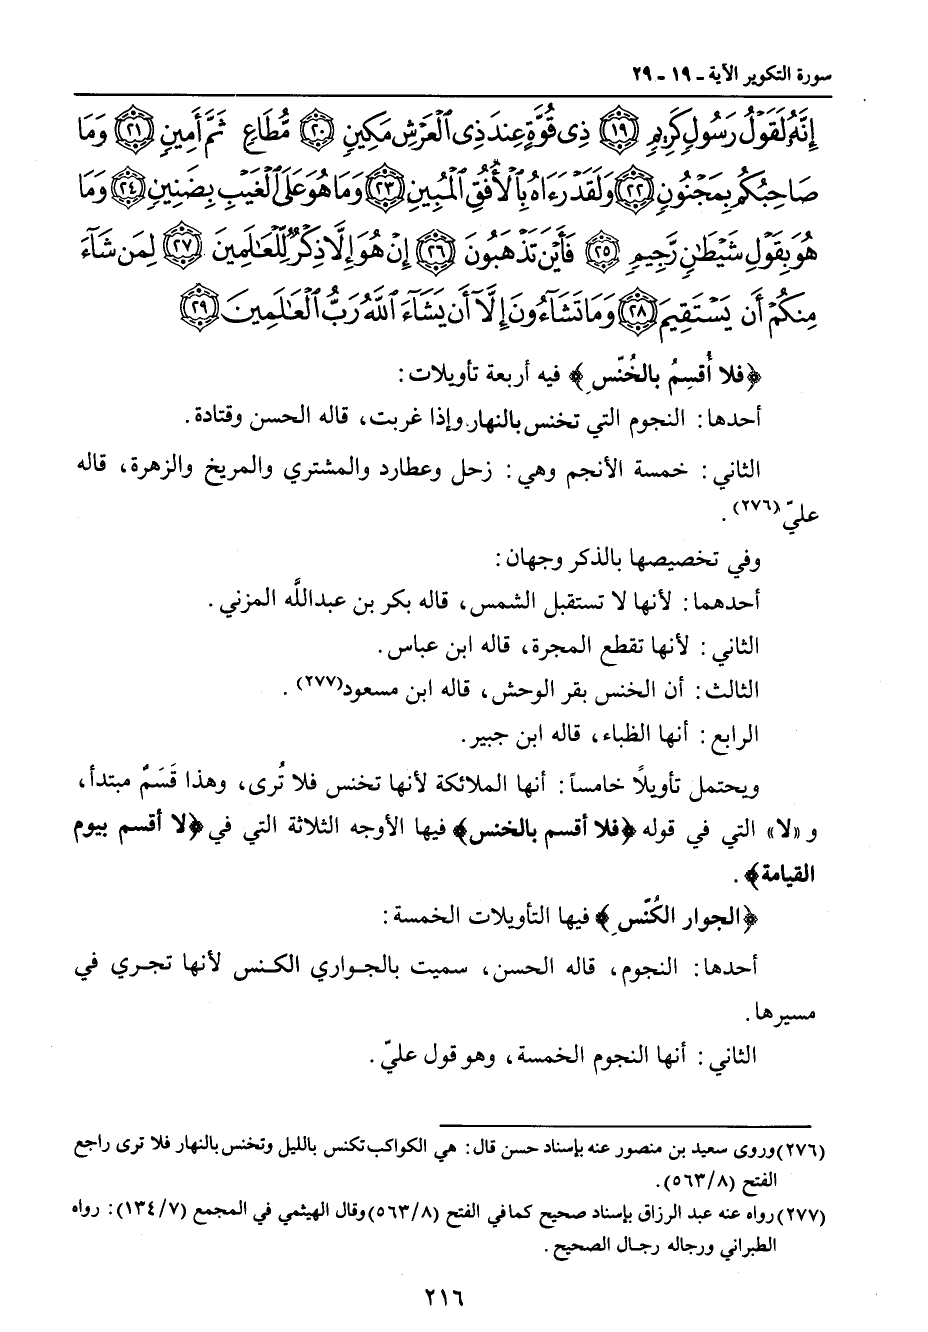 سورة التكوير الآية ـ ١٩ ـ ٢٩
إِنَّهُ لَقَوْلُ رَسُولٍ كَرِيمٍ ﴿١٩﴾ ذِي قُوَّةٍ عِندَ ذِي الْعَرْشِ مَكِينٍ ﴿٢٠﴾ مُّطَاعٍ ثَمَّ أَمِينٍ ﴿٢١﴾ وَمَا
صَاحِبُكُم بِمَجْنُونٍ ﴿٢٢﴾ وَلَقَدْ رَءَاهُ بِالْأُفُقِ الْمُبِينِ ﴿٢٣﴾ وَمَا هُوَ عَلَى الْغَيْبِ بِضَنِينٍ ﴿٢٤﴾ وَمَا
هُوَ بِقَوْلِ شَيْطَٰنٍ رَّجِيمٍ ﴿٢٥﴾ فَأَيْنَ تَذْهَبُونَ ﴿٢٦﴾ إِنْ هُوَ إِلَّا ذِكْرٌ لِّلْعَٰلَمِينَ ﴿٢٧﴾ لِمَن شَآءَ
مِنكُمْ أَن يَسْتَقِيمَ ﴿٢٨﴾ وَمَا تَشَآءُونَ إِلَّآ أَن يَشَآءَ اللَّهُ رَبُّ الْعَٰلَمِينَ ﴿٢٩﴾
﴿فلا أُقسِمُ بالخُنّسِ﴾ فيه أربعة تأويلات:
أحدها: النجوم التي تخنس بالنهار وإذا غربت، قاله الحسن وقتادة.
الثاني: خمسة الأنجم وهي: زحل وعطارد والمشتري والمريخ والزهرة، قاله
عليّ(٢٧٦).
وفي تخصيصها بالذكر وجهان:
أحدهما: لأنها لا تستقبل الشمس، قاله بكر بن عبدالله المزني.
الثاني: لأنها تقطع المجرة، قاله ابن عباس.
الثالث: أن الخنس بقر الوحش، قاله ابن مسعود(٢٧٧).
الرابع: أنها الظباء، قاله ابن جبير.
ويحتمل تأويلاً خامساً: أنها الملائكة لأنها تخنس فلا تُرى، وهذا قَسَمٌ مبتدأ،
و «لا» التي في قوله ﴿فلا أقسم بالخنس﴾ فيها الأوجه الثلاثة التي في ﴿لا أقسم بيوم
القيامة﴾.
﴿الجوار الكُنّسِ﴾ فيها التأويلات الخمسة:
أحدها: النجوم، قاله الحسن، سميت بالجواري الكنس لأنها تجري في
مسيرها.
الثاني: أنها النجوم الخمسة، وهو قول عليّ.
(٢٧٦) وروى سعيد بن منصور عنه بإسناد حسن قال: هي الكواكب تكنس بالليل وتخنس بالنهار فلا ترى راجع
الفتح (٥٦٣/٨).
(٢٧٧) رواه عنه عبد الرزاق بإسناد صحيح كما في الفتح (٥٦٣/٨) وقال الهيثمي في المجمع (١٣٤/٧): رواه
الطبراني ورجاله رجال الصحيح.
٢١٦